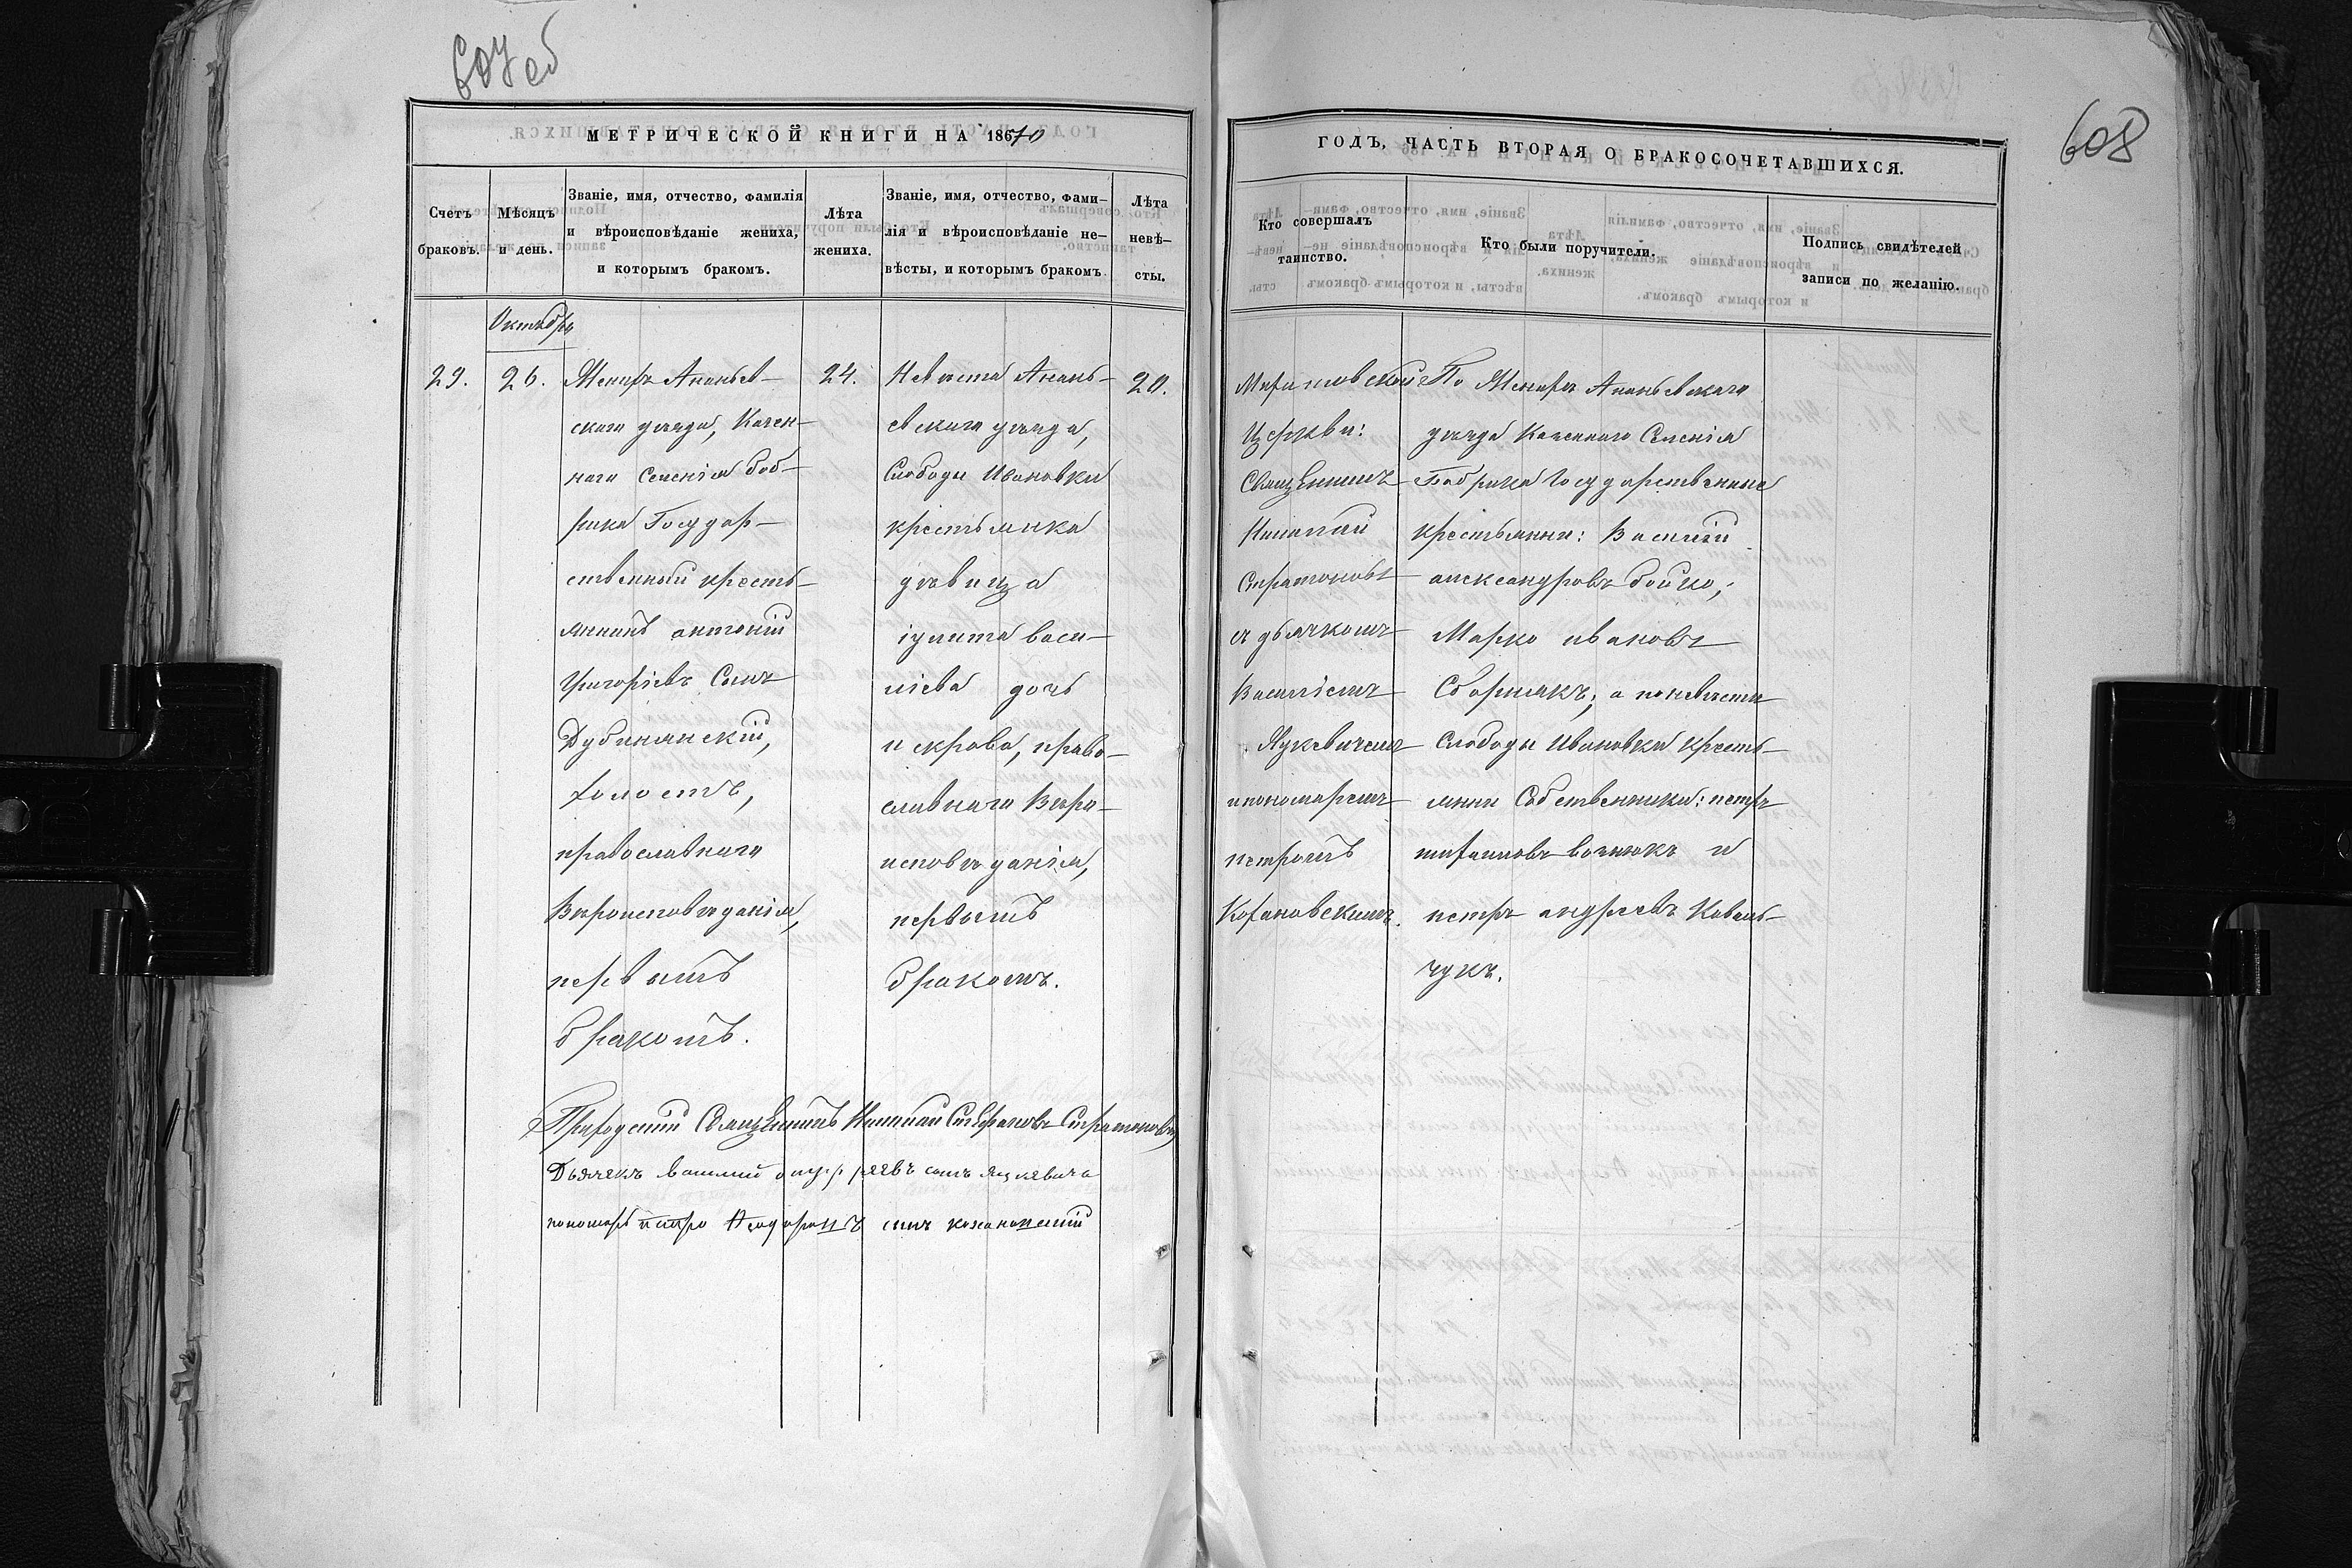 607 об
608
МЕТРИЧЕСКОЙ КНИГИ НА 1870
ГОДЪ, ЧАСТЬ ВТОРАЯ О БРАКОСОЧЕТАВШИХСЯ.
Счетъ
браковъ.
Мѣсяцъ
и день.
Званіе, имя, отчество, фамилія
и вѣроисповѣданіе жениха,
и которымъ бракомъ.
Лѣта
жениха.
Званіе, имя, отчество, фами-
лія и вѣроисповѣданіе не-
вѣсты, и которымъ бракомъ
Лѣта
невѣ-
сты.
Кто совершалъ
таинство.
Кто были поручители.
Подпись свидѣтелей
записи по желанію.
Октября
29.
26.
Женихъ Ананьев-
скаго уѣзда, Казен-
наго Селенія Боб-
рика Государ-
ственный кресть-
янинъ антоній
Григоріевъ Сынъ
Дубинянскій,
холостъ,
православнаго
Вѣроисповѣданія,
первымъ
бракомъ.
24.
Невѣста Анань-
евскаго уѣзда,
Слободы Ивановки
крестьянка
дѣвица
іулита васи-
ліева дочь
искрова, право-
славнаго Вѣро-
исповѣданія,
первымъ
бракомъ.
20.
Церкви:
Священникъ
Николай
Стратоновъ
съ дьячкомъ
Василіемъ
Яцкевичемъ
и пономаремъ
петромъ
Кохановскимъ.
По Женихѣ Ананьевскаго
уѣзда Казеннаго Селенія
Бобрика Государственные
крестьяне: Василій
александровъ бойко;
Марко ивановъ
Сборщикъ; а по невѣстѣ
Слободы Ивановки кресть-
яне Собственники: петръ
и
петръ андреевъ Коваль-
чукъ.
Приходскій Священникъ Николай Стефановъ Стратоновъ,
Дьячекъ василій андреевъ сынъ яцкевичъ
пономарь петро Федоровъ сынъ кохановскій